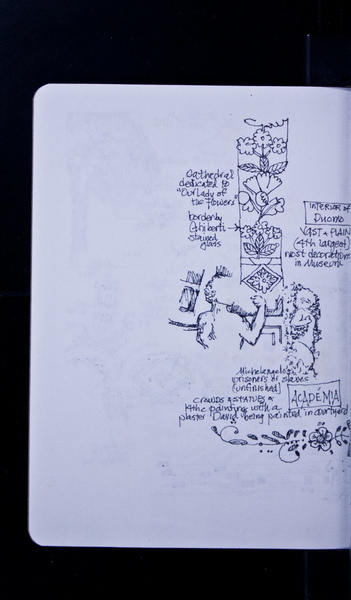 Cathedral
dedicated to
"Our Lady of
the Flowers"
border by
Ghiberti
stained
glass
INTERIOR of
Duomo
VAST & PLAIN
(4th largest)
most decoration
in Museum
Michelangelo's
prisoners or slaves
(unfinished)
ACADÉMIA
CROWDS & STATUES &
14th c painting with a
plaster "David" being painted in courtyard